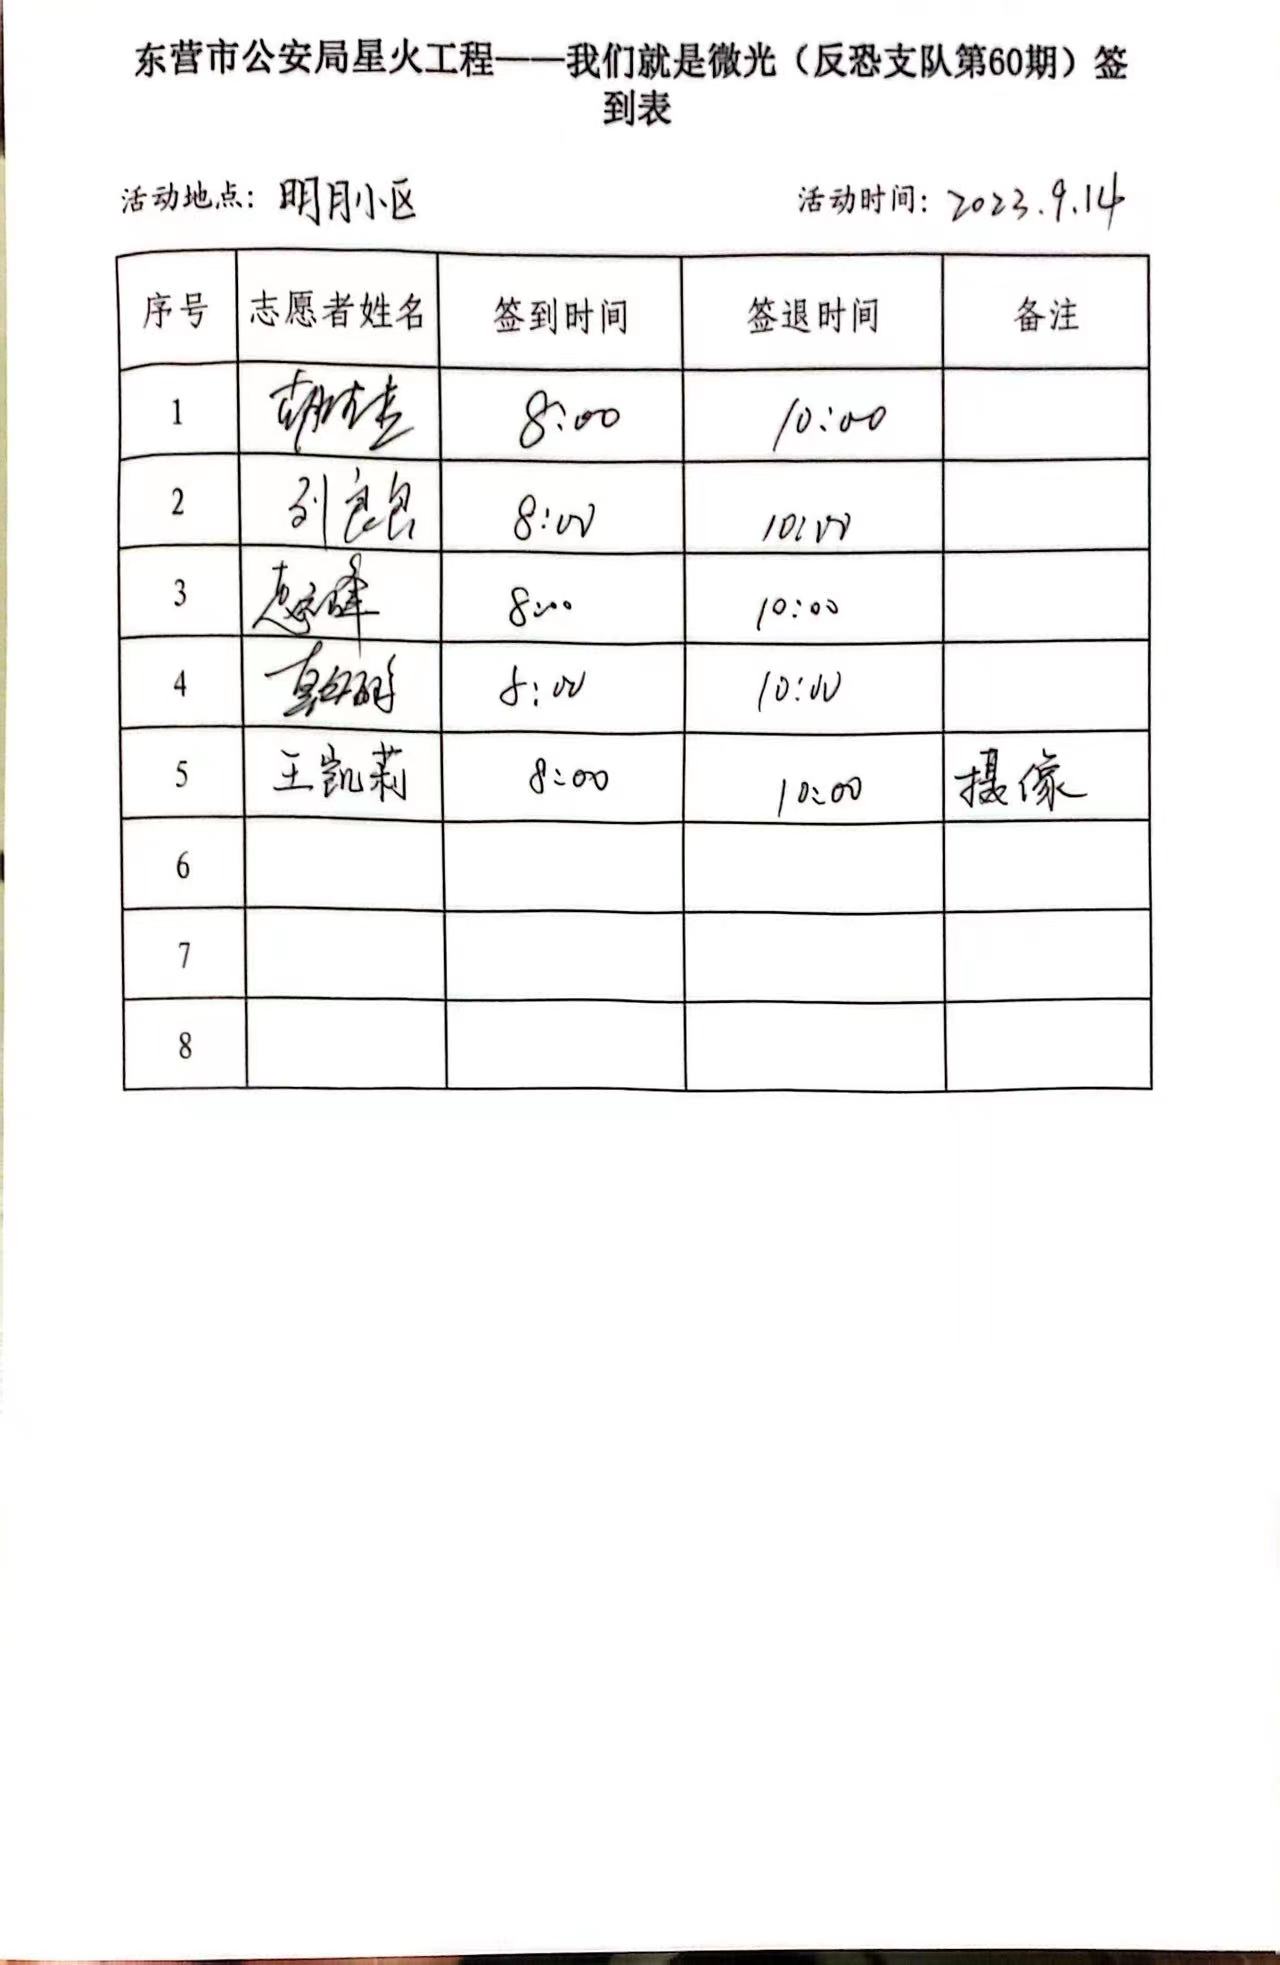 东营市公安局星火工程——我们就是微光（反恐支队第60期）签
到表
活动地点：明月小区 活动时间：2023.9.14
序号 志愿者姓名 签到时间 签退时间 备注
1 8:00 10:00
2 刘良良 8:00 10:00
3 8:00 10:00
4 8:00 10:00
5 王凯莉 8:00 10:00 摄像
6
7
8